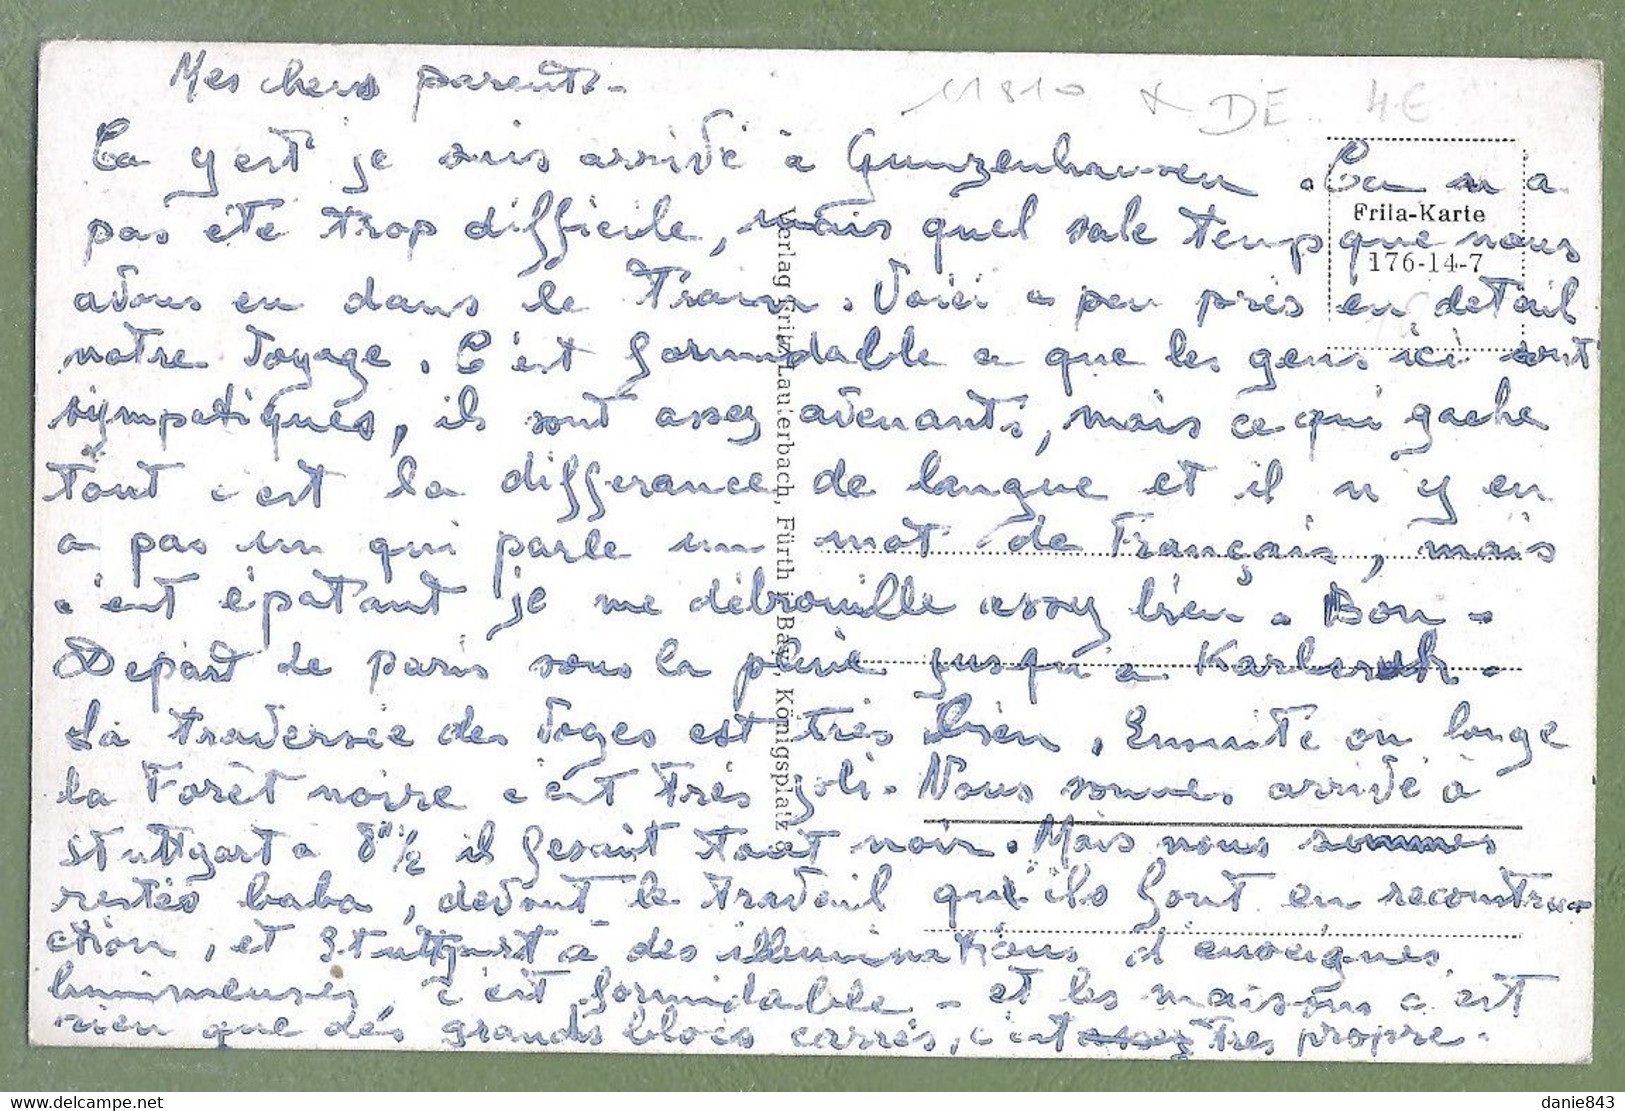 Mes chers parents.
11810 x DE 4€
Ca y est je suis arrivé à Gunzenhausen. Ca n a
Frila-Karte
pas eté trop difficile, mais quel sale temp que nous
176-14-7
avons eu dans le train. Voici a peu près en detail
notre voyage. C'est formidable a que les gens ici sont
sympatiques, ils sont assez avenants, mais ce qui gache
tout c'est la differance de langue et il n y en
a pas un qui parle un mot de Français, mais
c'est épatant je me débrouille assez bien. Bon.
Depart de paris sous la pluie jusqu'a Karlsruh.
La traversée des Voges est très bien. Ensuite on longe
la Forèt noire c'est très joli. Nous sommes arrivé à
stuttgart a 8h 1/2 il fesait tout noir. Mais nous sommes
restés baba, devant le travail qu'ils font en reconstru-
ction, et Stuttgart a des illuminations d'enseignes
lumineuses, c'est formidable - et les maisons c'est
rien que dés grands blocs carrés, c'est très propre.
Verlag Fritz Lauterbach, Fürth i. Bay., Königsplatz 8
danie843